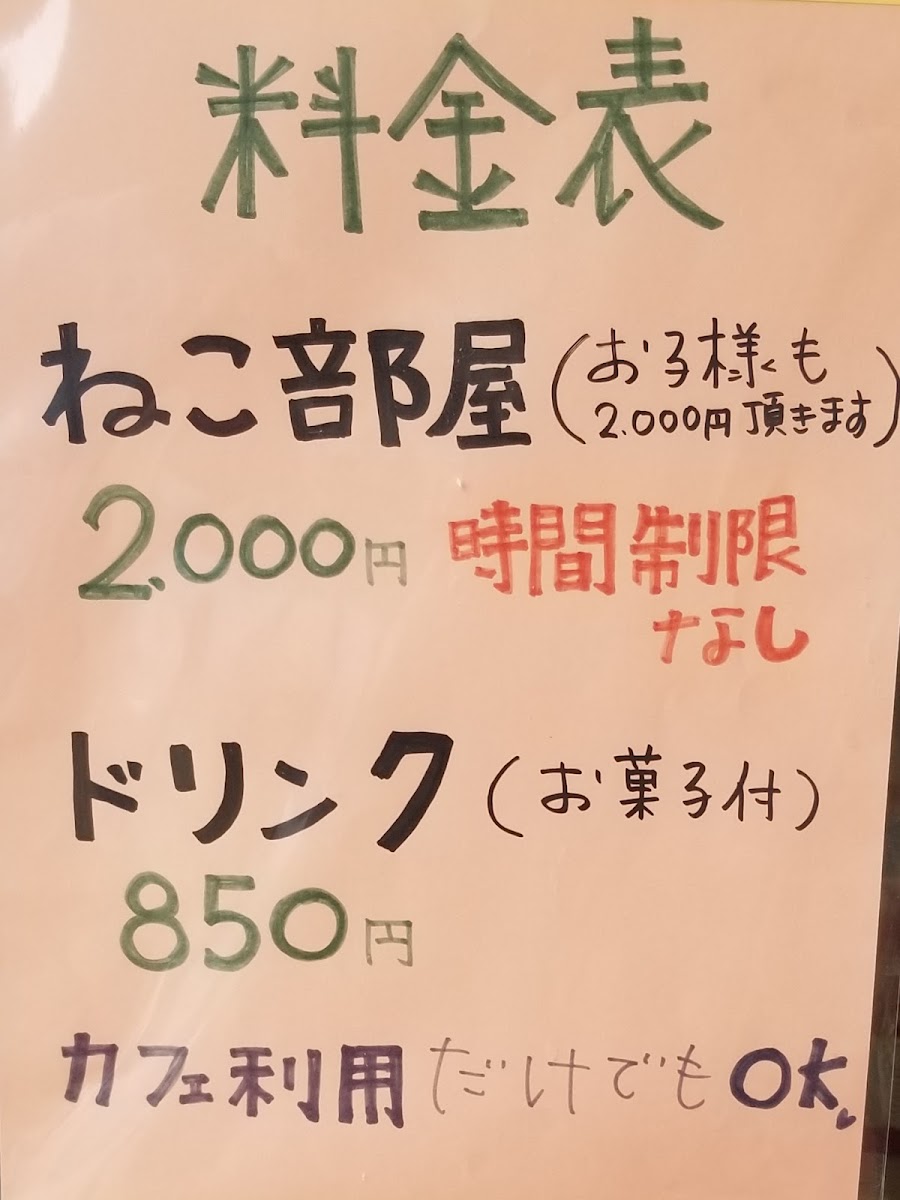 料金表
ねこ部屋(お子様も
2.000円頂きます)
2.000円 時間制限
なし
ドリンク(お菓子付)
850円
カフェ利用だけでもOK